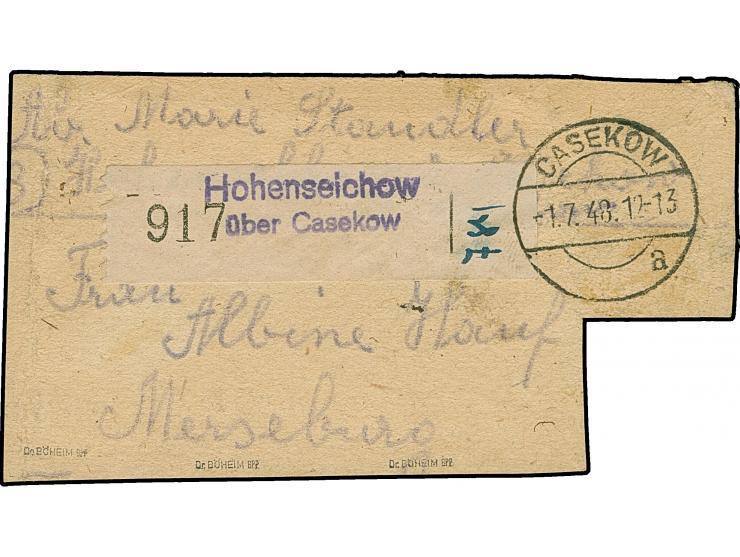 Marie Standler
Hohenselchow
917 über Casekow
7 Kg
CASEKOW
-1.7.48.12-13
a
Frau
Albine Hauf
Merseburg
Dr. BÖHEIM BPP
Dr. BÖHEIM BPP.
Dr. BÖHEIM BPP.